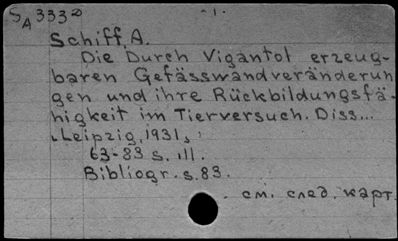 SA 3330 -1.
Schiff, A.
Die Durch Vigantol erzeug-
baren Gefässwandveränderun
gen und ihre Rückbildungsfä-
higkeit im Tierversuch. Diss...
Leipzig, 1931,
63-83 s. ill.
Bibliogr. s. 83.
см. след. карт.